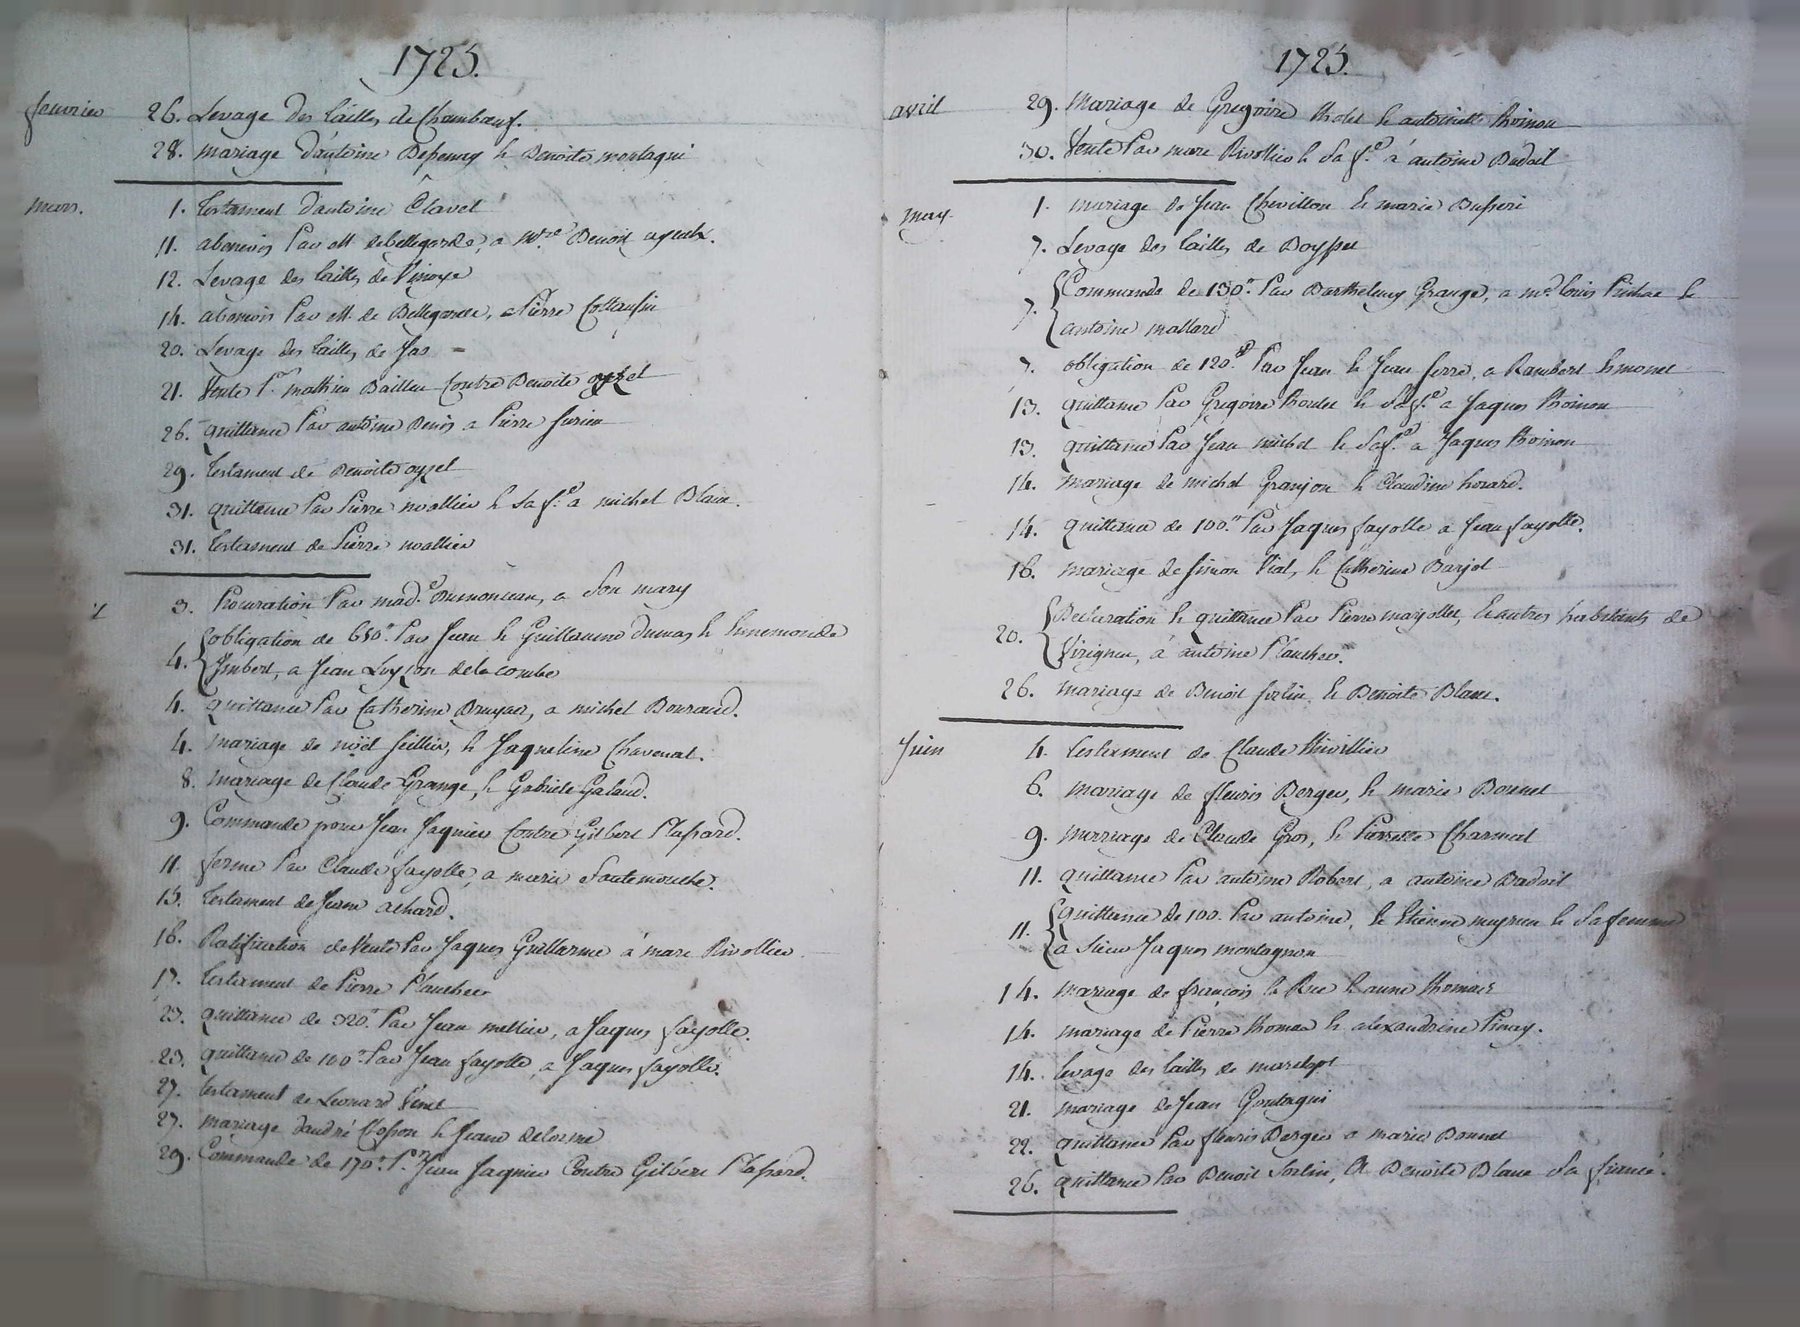 1725.
feuvrier 26. Levage des tailles de Chambœuf.
28. mariage d'antoine Depeury & Benoite montagni
mars. 1. testament d'antoine Clavel
11. abenevis Par Mr. de bellegarde, a Mre Benoit
12. Levage des tailles de
14. abenevis Par Mr. de Bellegarde, a Pierre
20. Levage des tailles de Jas
21. Vente Pr. mathieu Baillu Contre Benoite oyzel
26. quittance Par antoine Denis a Pierre
29. testament de Benoite oyzel
31. quittance Par Pierre noallier & sa fe. a michel Blanc.
31. testament de Pierre noallier
3. Procuration Par made. Dumonceau, a Son mary
4. obligation de 650tt. Par Jean & Guillaume dumas & hunemonde
Imbert, a Jean Luyzon de la combe
4. quittance Par Catherine Bruyas, a michel Bouraud.
4. mariage de noël seillier, & Jaqueline Chavenat.
8. mariage de Claude Grange, & Gabriele Galand.
9. Commande pour Jean Jaquier Contre Gilbert Plassard.
11 ferme Par Claude fayolle, a marie Sautemouche.
15. testament de Jean achard.
16. Ratification de Vente Par Jaques Guillarme à marc Rivollier
17. testament de Pierre Plancher
23. quittance de 320tt. Par Jean mellier, a Jaques fayolle.
23. quittance de 100tt. Par Jean fayolle a Jaques fayolle.
27. testament de Leonard
27. mariage d'andré Closson & Jeane delorme
29. Commande de 170tt. Pr. Jean Jaquier Contre Gilbert Plassard.
1725.
avril 29. Mariage de Gregoire Tholet & antoinette Thoinon
30. Vente Par marc Rivollier & Sa fe. à antoine Badoil
may. 1. mariage de Jean Chevillon & marie Busseri
7. Levage des tailles de Boysset
7. Commande de 130tt. Par Barthelemy Grange, a me. louis Pichat &
antoine mallard
7. obligation de 120tt. Par Jean & Jean serre, a Rambert
13. quittance Par Gregoire Thoulet & Sa fe. a Jaques Thoinon
13. quittance Par Jean michel & Sa fe. a Jaques Thoinon
14. mariage de michel Granjon & Claudine horard.
14. quittance de 100tt. Par Jaques fayolle a Jean fayolle.
16. mariage de simon Vial, & Catherine Barjot
20. Declaration & quittance Par Pierre mayollet, & autres habitants de
Virigneu, à antoine Plancher.
26. mariage de Benoit sorlin, & Benoite Blanc.
Juin 4. testament de Claude Thivillier
6. mariage de fleuris Berger, & marie Bonnet
9. mariage de Claude Gros, & Pierrette Charmet
11. quittance Par antoine Robert, a antoine Badoil
11. quittance de 100. Par antoine, & Etienne & Sa femme
a Sieur Jaques montagnon
14. mariage de françois la Rue & anne Thomas
14. mariage de Pierre thomas & alexandrine Pinay.
14. levage des tailles de marclopt
21. mariage de Jean Goutagni
22. quittance Par fleuris Berger a marie Bonnet
26. quittance Par Benoit Sorlin, A Benoite Blanc sa fiancé.